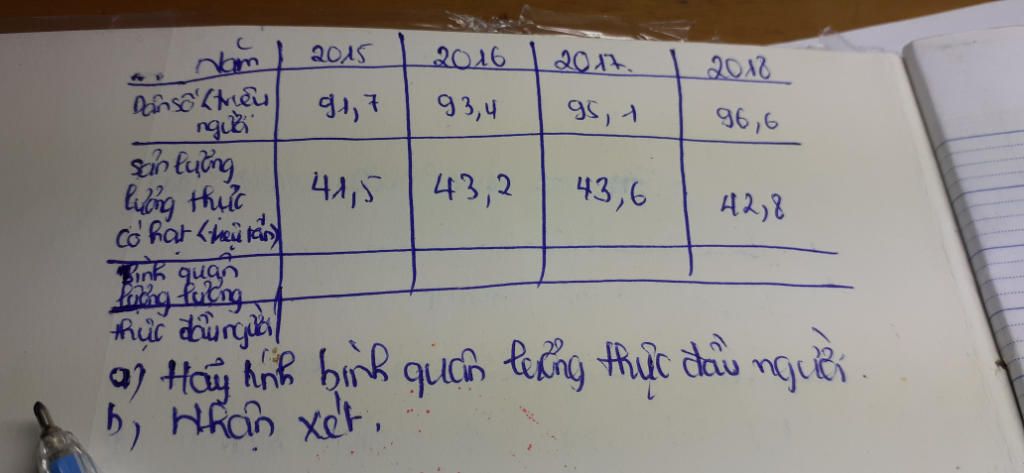 Năm 2015 2016 2017. 2018
Dân số (triệu 91,7 93,4 95,1 96,6
người
sản lượng
lương thực 41,5 43,2 43,6 42,8
có hạt (triệu tấn)
Bình quân
lượng lương
thực đầu người
a) Hãy tính bình quân lương thực đầu người.
b, Nhận xét.